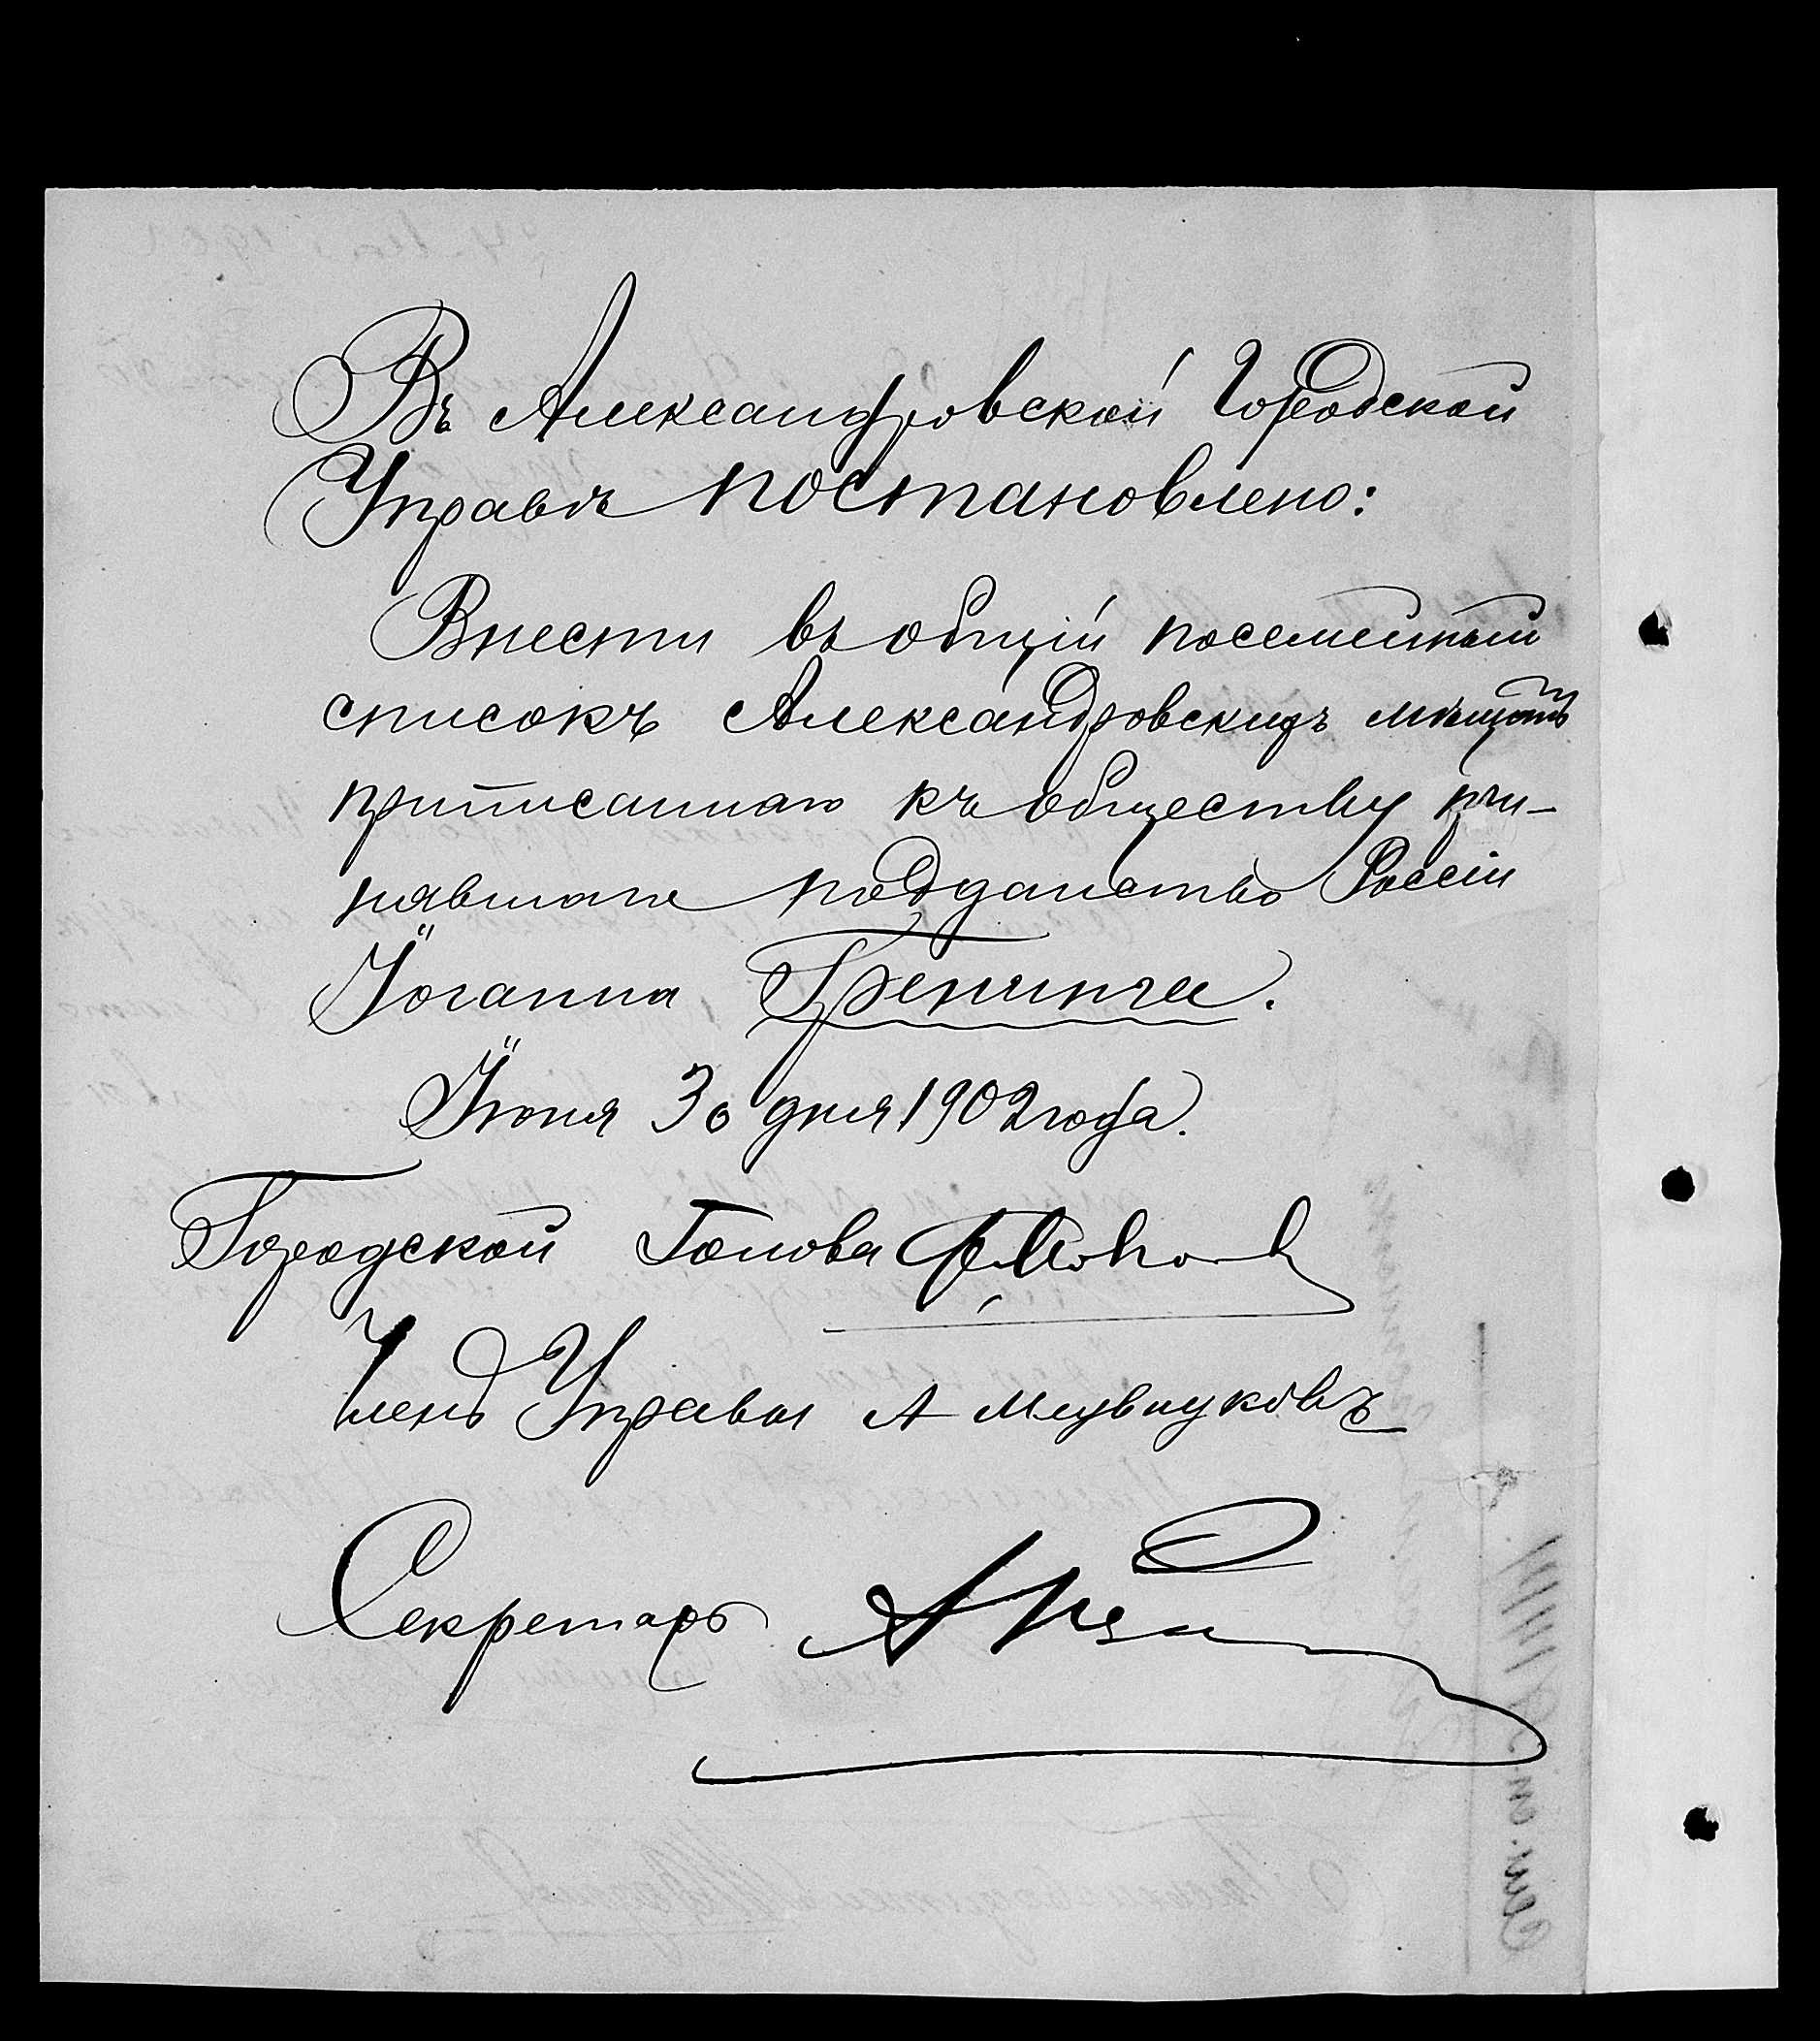 Въ Александровской Городской
Управѣ постановлено:
Внести въ общій посемейный
списокъ Александровскихъ мѣщанъ
приписаннаго къ обществу при-
нявшаго подданство Россіи
Іоганна Гренинга.
Іюня 30 дня 1902 года.
Городской Голова
Членъ Управы А
Секретарь А